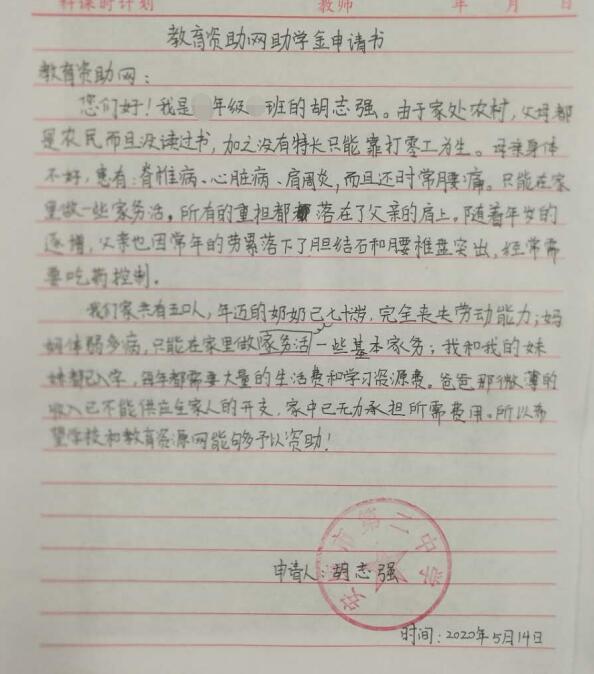 科课时计划 教师 年 月 日
教育资助网助学金申请书
教育资助网：
您们好！我是 年级 班的胡志强。由于家处农村，父母都
是农民而且没读过书，加之没有特长只能靠打零工为生。母亲身体
不好，患有：脊椎病、心脏病、肩周炎，而且还时常腰痛。只能在家
里做一些家务活。所有的重担都落在了父亲的肩上。随着年岁的
逐增，父亲也因常年的劳累落下了胆结石和腰椎盘突出，经常需
要吃药控制。
我们家共有五口人，年迈的奶奶已七十岁，完全丧失劳动能力；妈
妈体弱多病，只能在家里做家务活一些基本家务；我和我的妹
妹都已入学，每年都需要大量的生活费和学习资源费。爸爸那微薄的
收入已不能供应全家人的开支，家中已无力承担所需费用。所以希
望学校和教育资源网能够予以资助！
安 市第二中学
申请人：胡志强
时间：2020年5月14日